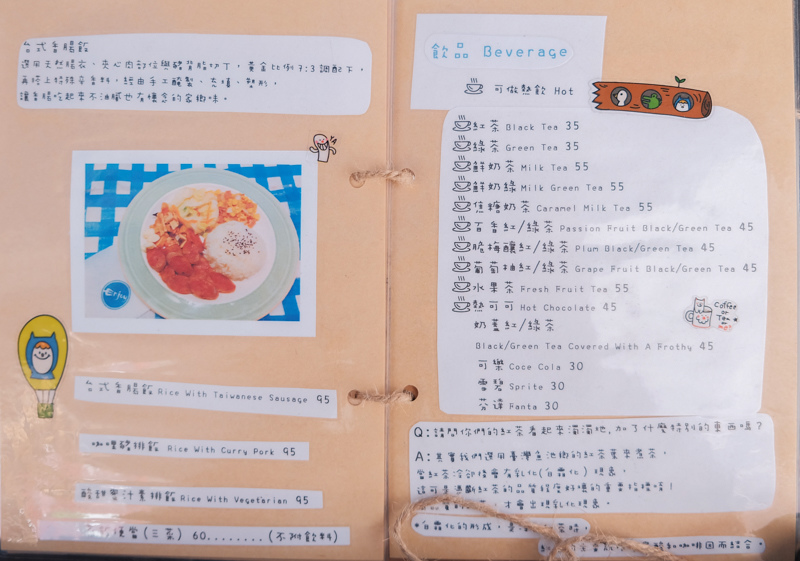 台式香腸飯
選用天然腸衣，夾心肉部位與豬背脂切丁，黃金比例7:3調配下，
再控上特殊辛香料，經由手工醃製、充填、塑形，
讓香腸吃起來不油膩也有懷念的家鄉味。
YA
Erjia
台式香腸飯 Rice With Taiwanese Sausage 95
咖哩豬排飯 Rice With Curry Pork 95
酸甜蜜汁素排飯 Rice With Vegetarian 95
便當(三菜) 60........(不附飲料)
飲品 Beverage
可做熱飲 Hot
紅茶 Black Tea 35
綠茶 Green Tea 35
鮮奶茶 Milk Tea 55
鮮奶綠 Milk Green Tea 55
焦糖奶茶 Caramel Milk Tea 55
百香紅/綠茶 Passion Fruit Black/Green Tea 45
脆梅釀紅/綠茶 Plum Black/Green Tea 45
葡萄柚紅/綠茶 Grape Fruit Black/Green Tea 45
水果茶 Fresh Fruit Tea 55
熱可可 Hot Chocolate 45
奶蓋紅/綠茶
Black/Green Tea Covered With A Frothy 45
可樂 Coce Cola 30
雪碧 Sprite 30
芬達 Fanta 30
Coffee
or
Tea
or
Me?
Q:請問你們的紅茶看起來濁濁地,加了什麼特別的東西嗎?
A:其實我們選用臺灣魚池鄉的紅茶葉來煮茶，
當紅茶冷卻後會有乳化(白霧化)現象，
這可是濃厳紅茶的品質有多麼好壞的重要指標唷!
才會出現乳化現象。
*白霧化的形成，是
和咖啡因而結合。